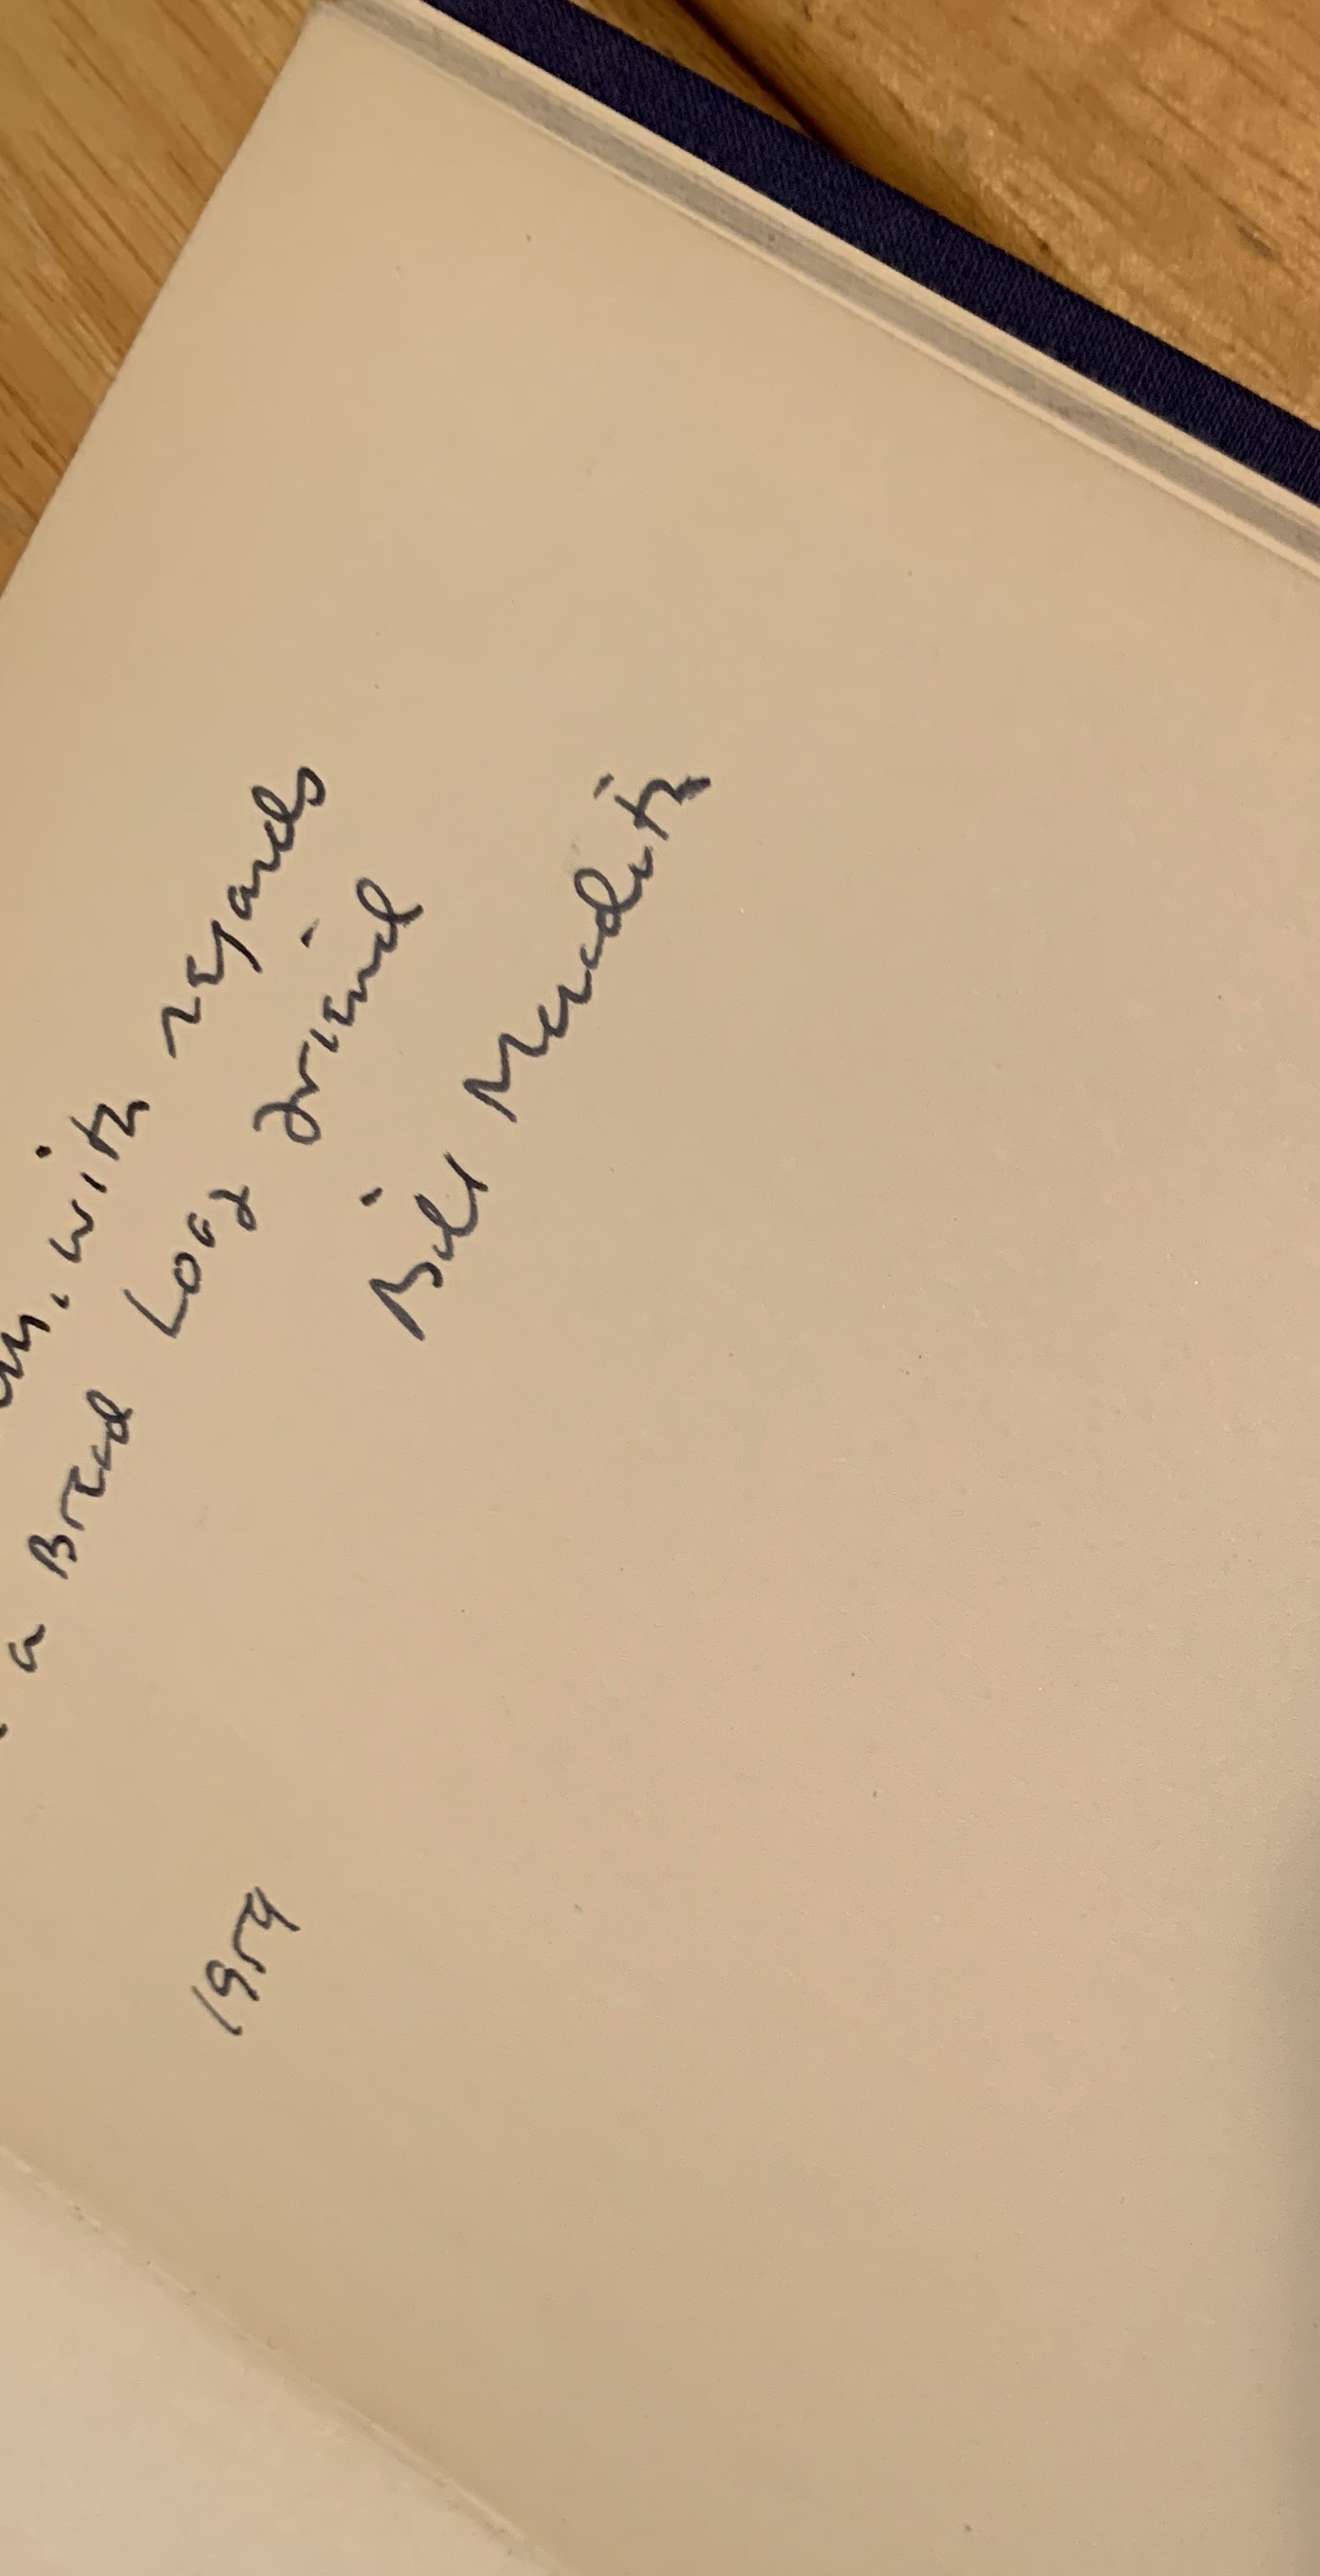 with regards
a Bread Loaf friend
Bill Meredith
1959